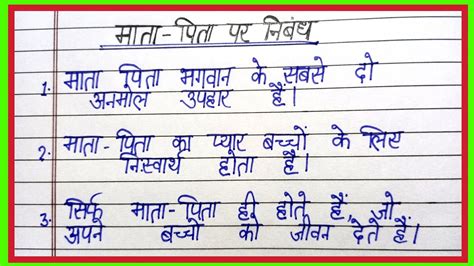 माता-पिता पर निबंध
1. माता पिता भगवान के सबसे दो
अनमोल उपहार हैं।
2. माता-पिता का प्यार बच्चों के लिए
निस्वार्थ होता है।
3. सिर्फ माता-पिता ही होते हैं, जो
अपने बच्चों को जीवन देते हैं।